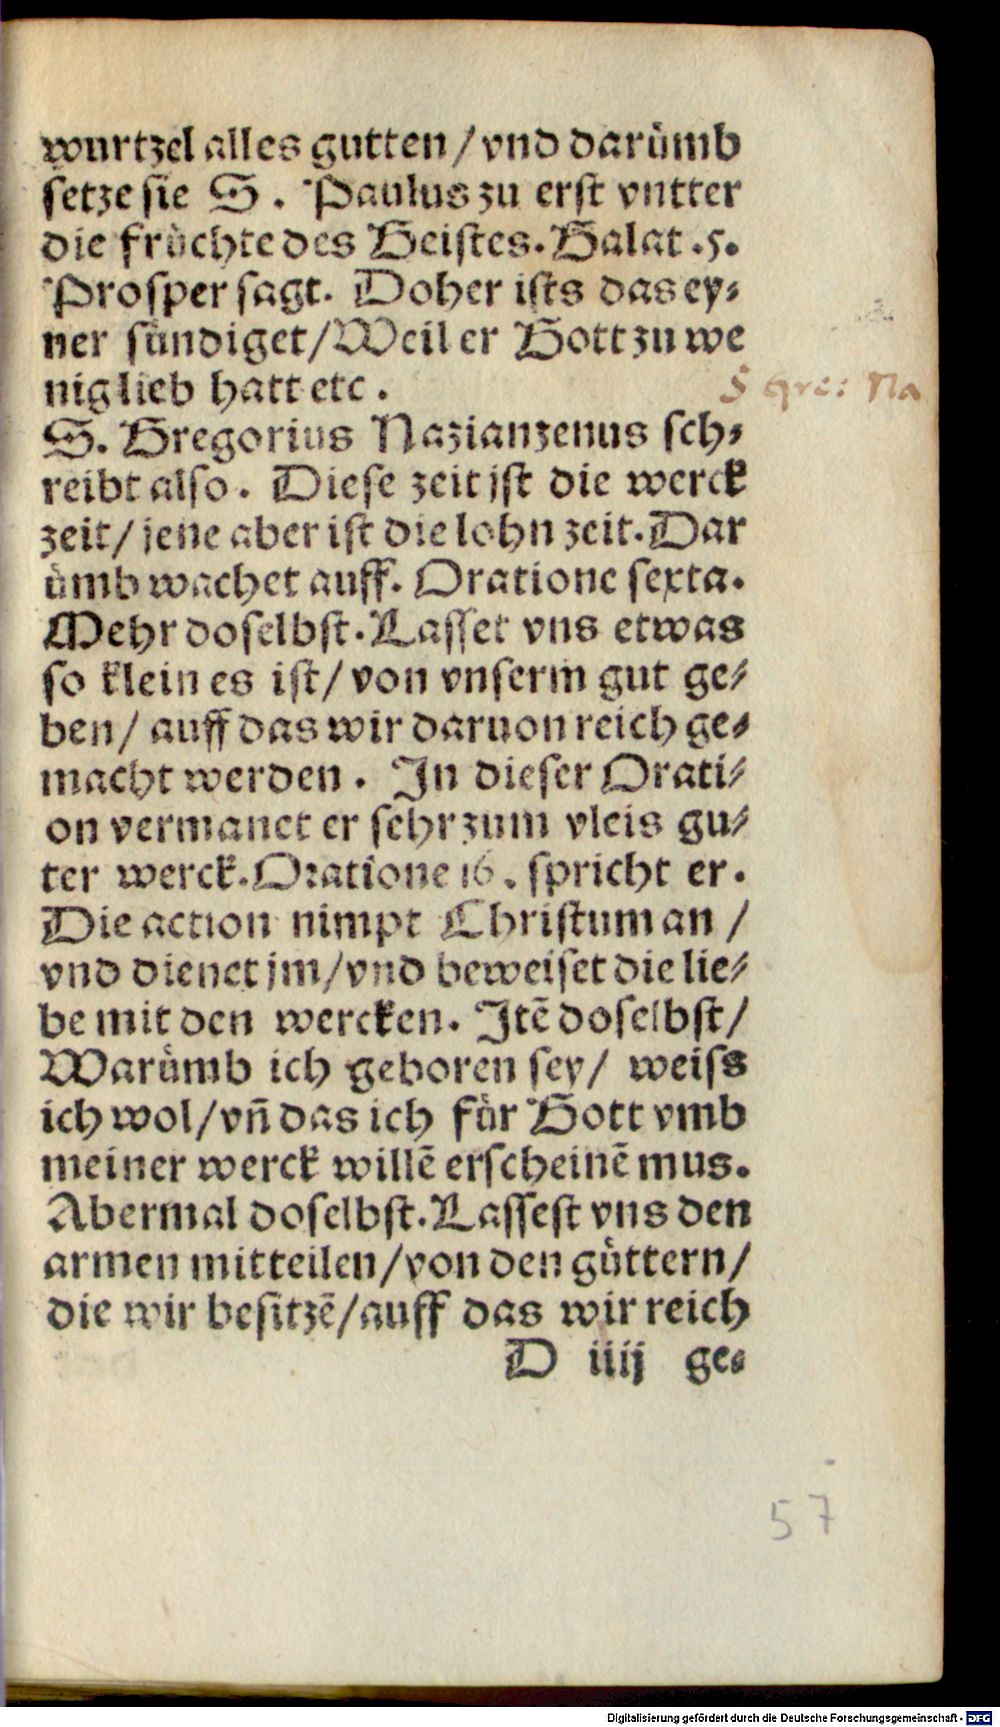 wurtzel alles gutten / vnd darůmb
setze sie S. Paulus zu erst vntter
die frůchte des Geistes. Galat. 5.
Prosper sagt. Doher ists das ey⸗
ner sůndiget / Weil er Gott zu we
nig lieb hatt etc.
S gre: Na
S. Gregorius Nazianzenus sch⸗
reibt also. Diese zeit jst die werck
zeit / jene aber ist die lohn zeit. Dar
ůmb wachet auff. Oratione sexta.
Mehr doselbst. Lasset vns etwas
so klein es ist / von vnserm gut ge⸗
ben / auff das wir daruon reich ge⸗
macht werden. In dieser Orati⸗
on vermanet er sehr zum vleis gu⸗
ter werck. Oratione 16. spricht er.
Die action nimpt Christum an /
vnd dienet jm / vnd beweiset die lie⸗
be mit den wercken. Itē doselbst /
Warůmb ich geboren sey / weiss
ich wol / vn̄ das ich fůr Gott vmb
meiner werck willē erscheinē mus.
Abermal doselbst. Lassest vns den
armen mitteilen / von den gůttern /
die wir besitzē / auff das wir reich
D iiij ge⸗
57
Digitalisierung gefördert durch die Deutsche Forschungsgemeinschaft - DFG